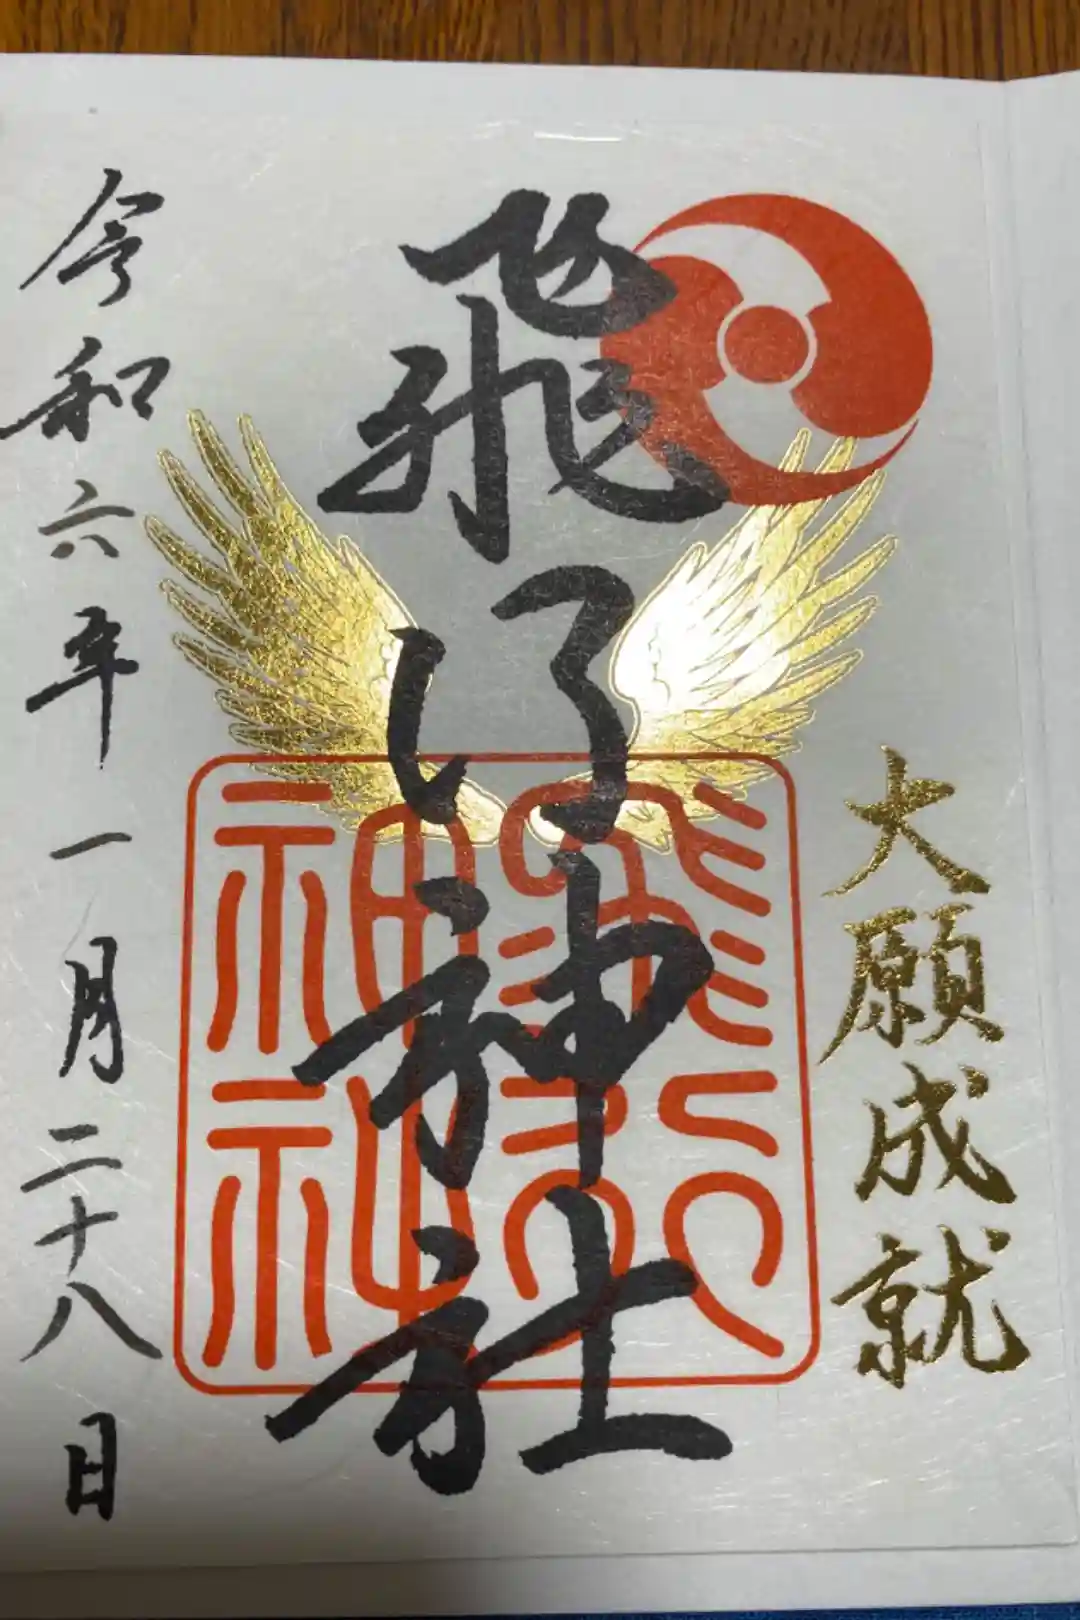 大願成就
飛行神社
飛行
神社
令和六年一月二十八日